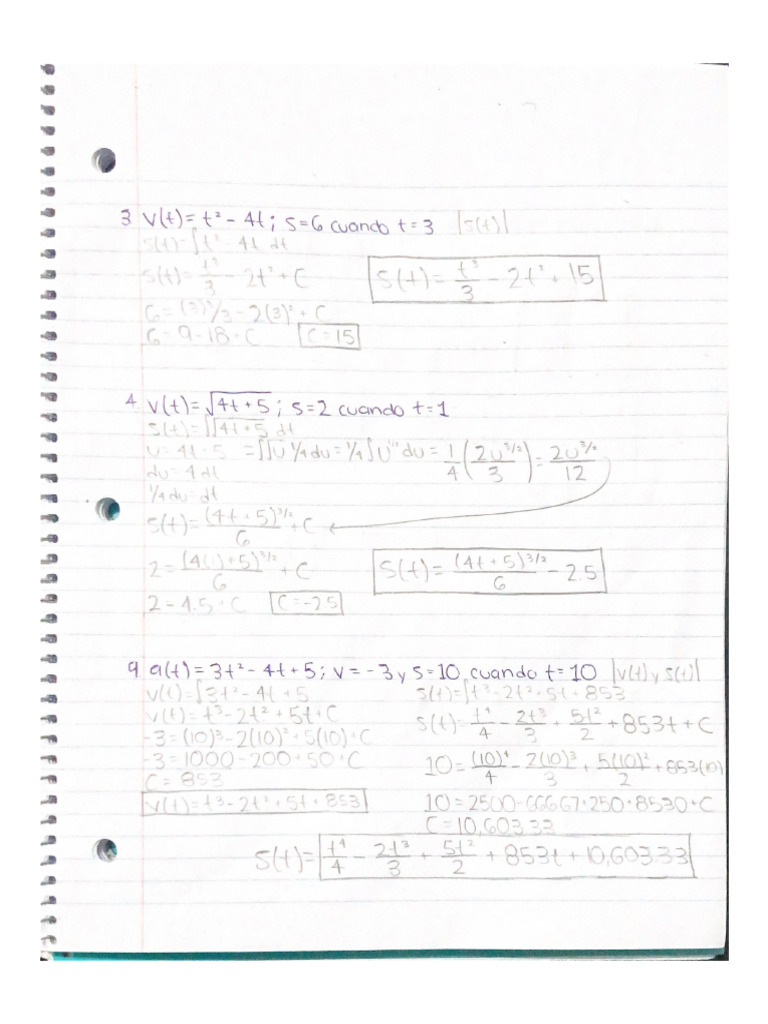 3. v(t) = t² - 4t ; s=6 cuando t=3 |s(t)|
s(t)=∫t² - 4t dt
s(t)= t³/3 - 2t² + C
s(t)= t³/3 - 2t² + 15
6 = (3)³/3 - 2(3)² + C
6 = 9 - 18 + C C=15
4. v(t)=√4t+5 ; s=2 cuando t=1
s(t)=∫√4t+5 dt
u=4t+5 =∫√u 1/4 du = 1/4∫u^1/2 du = 1/4 (2u^3/2/3) = 2u^3/2/12
du=4 dt
1/4 du=dt
s(t)= (4t+5)^3/2/6 + C
2= (4(1)+5)^3/2/6 + C
s(t)= (4t+5)^3/2/6 - 2.5
2=4.5+C C=-2.5
9. a(t)=3t² - 4t+5; v=-3 y s=10, cuando t=10 |v(t) y s(t)|
v(t)=∫3t² - 4t + 5
v(t)=t³ - 2t² + 5t + C
-3=(10)³ - 2(10)² + 5(10) + C
-3=1000 - 200 + 50 + C
C=853
v(t)=t³ - 2t² + 5t + 853
s(t)=∫t³ - 2t² + 5t + 853
s(t)= t⁴/4 - 2t³/3 + 5t²/2 + 853t + C
10= (10)⁴/4 - 2(10)³/3 + 5(10)²/2 + 853(10)
10=2500 - 666.67 + 250 + 8530 + C
C=10,603.33
s(t)= t⁴/4 - 2t³/3 + 5t²/2 + 853t + 10,603.33